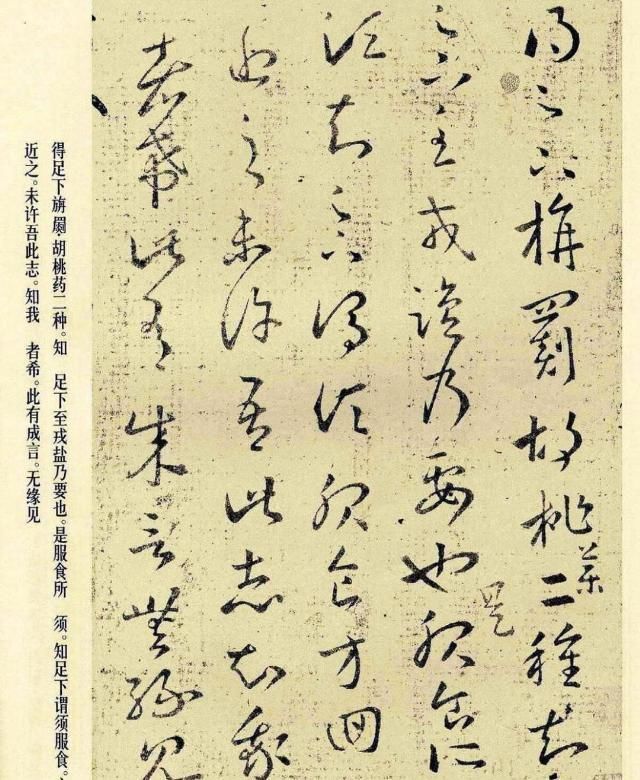 得足下旃罽胡桃藥二種知
足下至戎鹽乃要也是服食所
須知足下謂須服食方回
近之未許吾此志知我
者希此有成言無緣見
得足下旃罽·胡桃药二种。知 足下至戎盐乃要也。是服食所 须。知足下谓须服食。
近之。未许吾此志。知我 者希。此有成言。无缘见